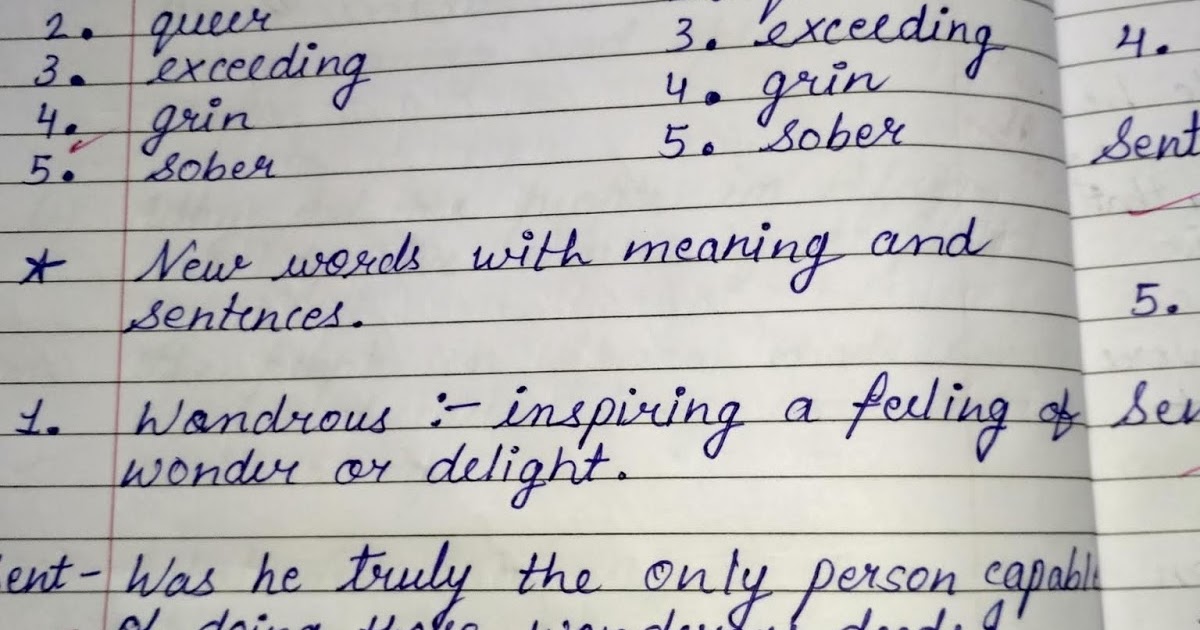 2. queer 3. exceeding
3. exceeding 4. grin
4. grin 5. sober
5. sober
* New words with meaning and
sentences.
1. Wondrous :- inspiring a feeling of
wonder or delight.
Sent - Was he truly the only person capable
of doing these wondrous deeds
4.
Sent
5.
Sen